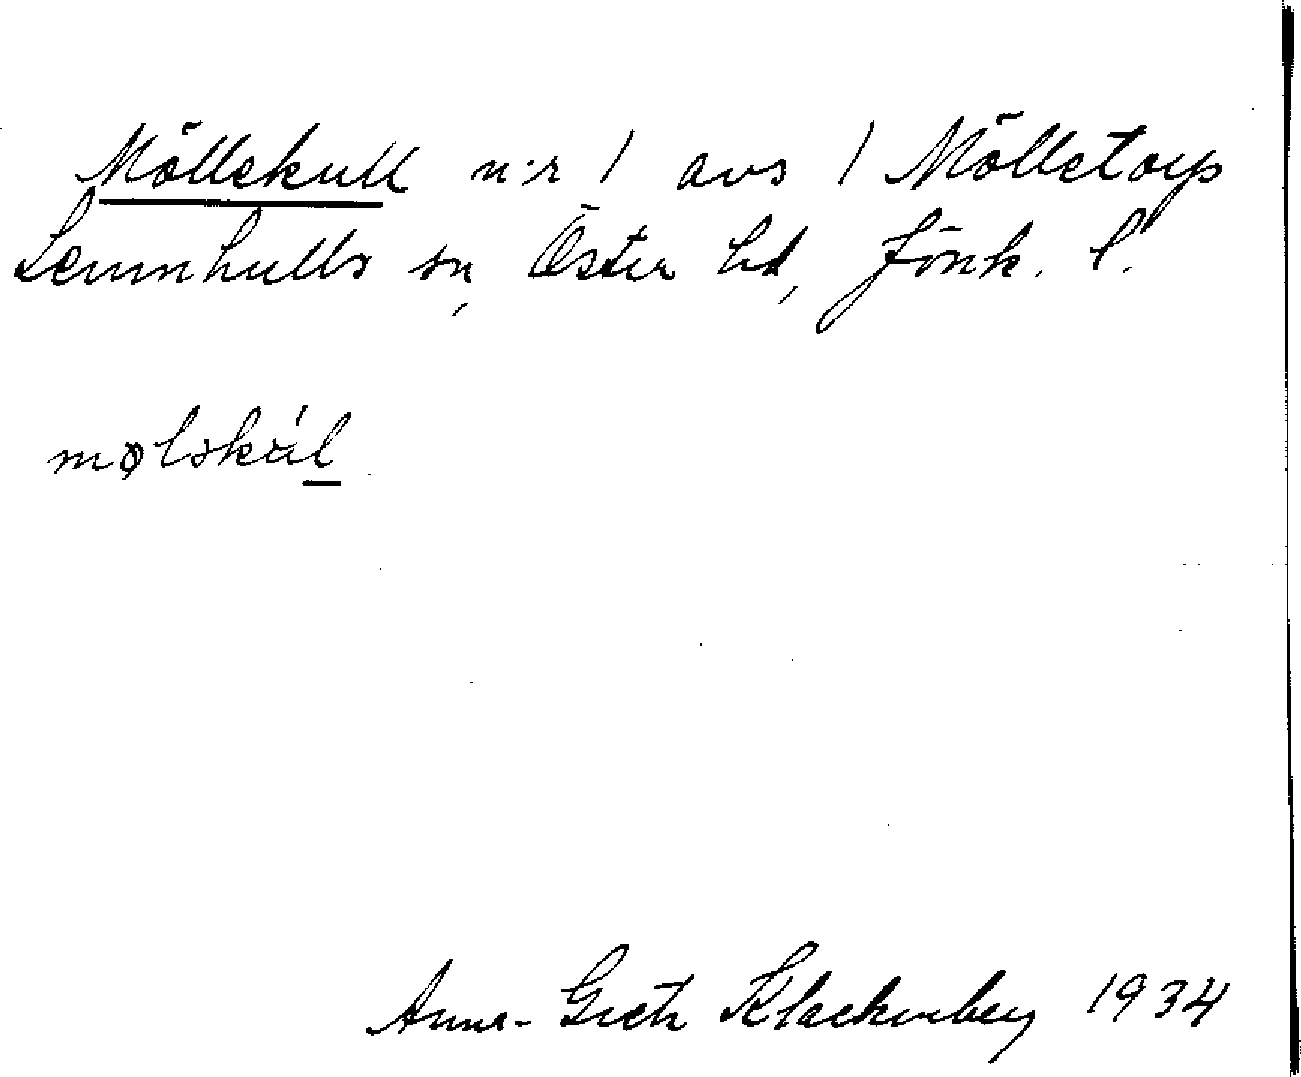 Möllekull n:r 1 avs 1 Mölletorp
Lemnhults sn, Öster hd, Jönk. l.
mølskúl
Anna-Greta Klackenberg 1934